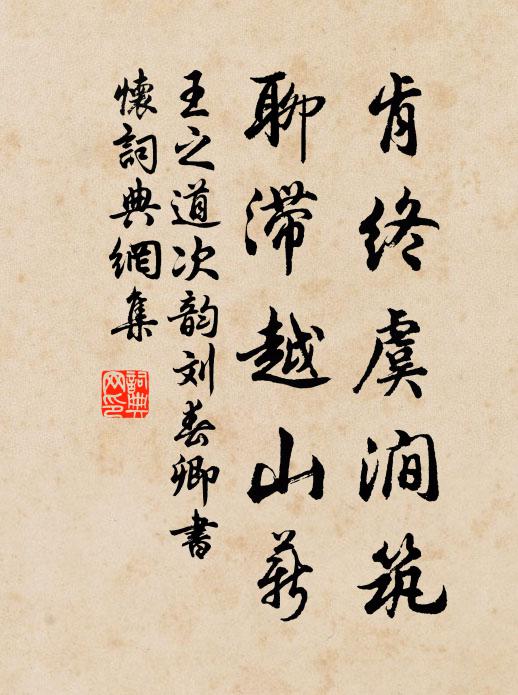 肯终虞涧筑
聊滞越山薪
王之道次韵刘春卿书
怀词典網集
詞典网印